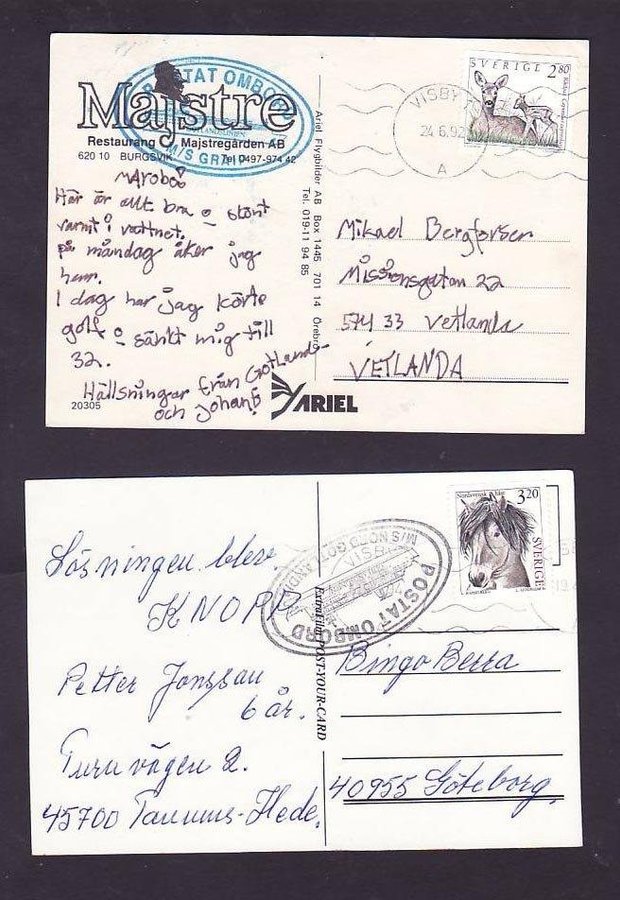 Majstre
Restaurang Majstregården AB
620 10 BURGSVIK Tel 0497-974 42
POSTAT OMBORD
GOTLANDSLINJEN
M/S GR
SVERIGE 2 80
VISBY
24 6.92
A
Här är allt bra o skönt
varmt i vattnet.
på måndag åker jag
hem.
I dag har jag kört
golf o sänkt mig till
32.
Hälsningar från Gotland
och Johan!
20305
ARIEL
Ariel Flygbilder AB Box 1445 701 14 Örebro
Tel. 019-11 94 85
Mikael Bergforsen
Missionsgatan 22
574 33 Vetlanda
VETLANDA
Lösningen blev
KNOPP
Petter Jonssau
6 år.
Turuvägen 2.
45700 Tanums-Hede.
POSTAT OMBORD
M/S NORD GOTLANDIA
VISBY
ExtraFilm POST-YOUR-CARD
Nordsvensk häst
3 20
SVERIGE
Bingo Berra
40955 Göteborg.